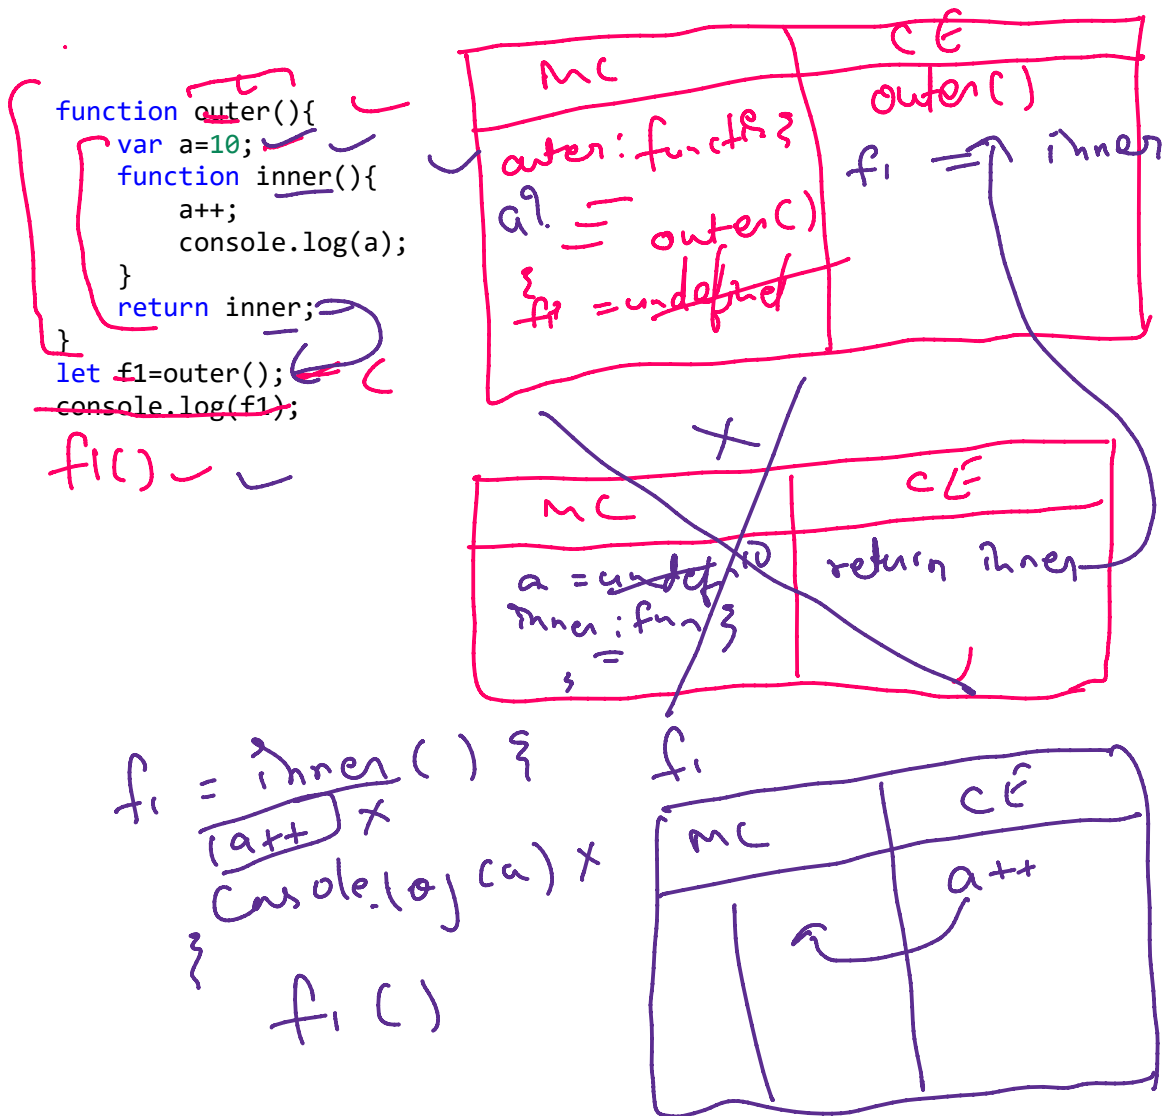 function outer(){
var a=10;
function inner(){
a++;
console.log(a);
}
return inner;
}
let f1=outer();
console.log(f1);
f1()
MC
CE
outer: functis}
outer()
a?
outer()
{
f1 = undefined
f1 = inner
MC
CE
a = undef 10
inner: fun }
return inner
f1 = inner() {
a++ X
Console.log(a) X
}
f1()
f1
MC
CE
a++